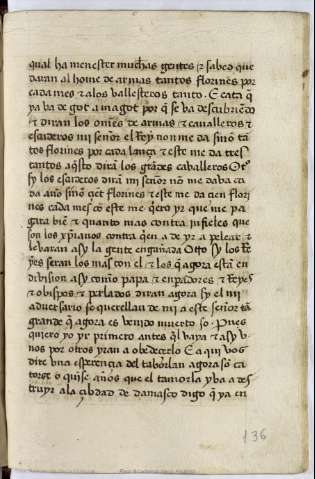 qual ha menester muchas gentes ⁊ sabed que
daran al home de armas tantos florines por
cada mes ⁊ alos vallesteros tanto. E cata q̃
ya va de got a magot por q̃ se va descubriẽdo
⁊ diran los om̃es de armas ⁊ cavalleros ⁊
escuderos mi señor el Rey non me da sinõ tã
tos florines por cada lança ⁊ este me da tres
tantos aq̃sto dirã los grãdes cavalleros
sy los escuderos dirã mi señor nõ me dava ca
da año sinõ florines ⁊ este me da çien flori
nes cada mes cõ este me q̃ero yr que me pa
gara biẽ ⁊ quanto mas contra infieles que
son los xp̃ianos contra q̃en a de yr a pelear ⁊
levaran asy la gente engañada Otto sy los rre
yes seran los mas con el ⁊ los q̃ agora estã en
division asy como papa ⁊ enp̃adores ⁊ Reyes
⁊ obispos ⁊ perlados diran agora sy el mi
adversario se querellan de mi a este señor tã
grande q̃ agora es venido muerto so. Pues
quiero yo yr primero antes q̃l vaya ⁊ asy v
nos por otros yran a obedeçerlo E aqui vos
dire una esperençia del taborlan agora sõ ca
torse o quise años que el tamorla yba a des
truyr ala çibdad de damasco digo q̃ ya en
136